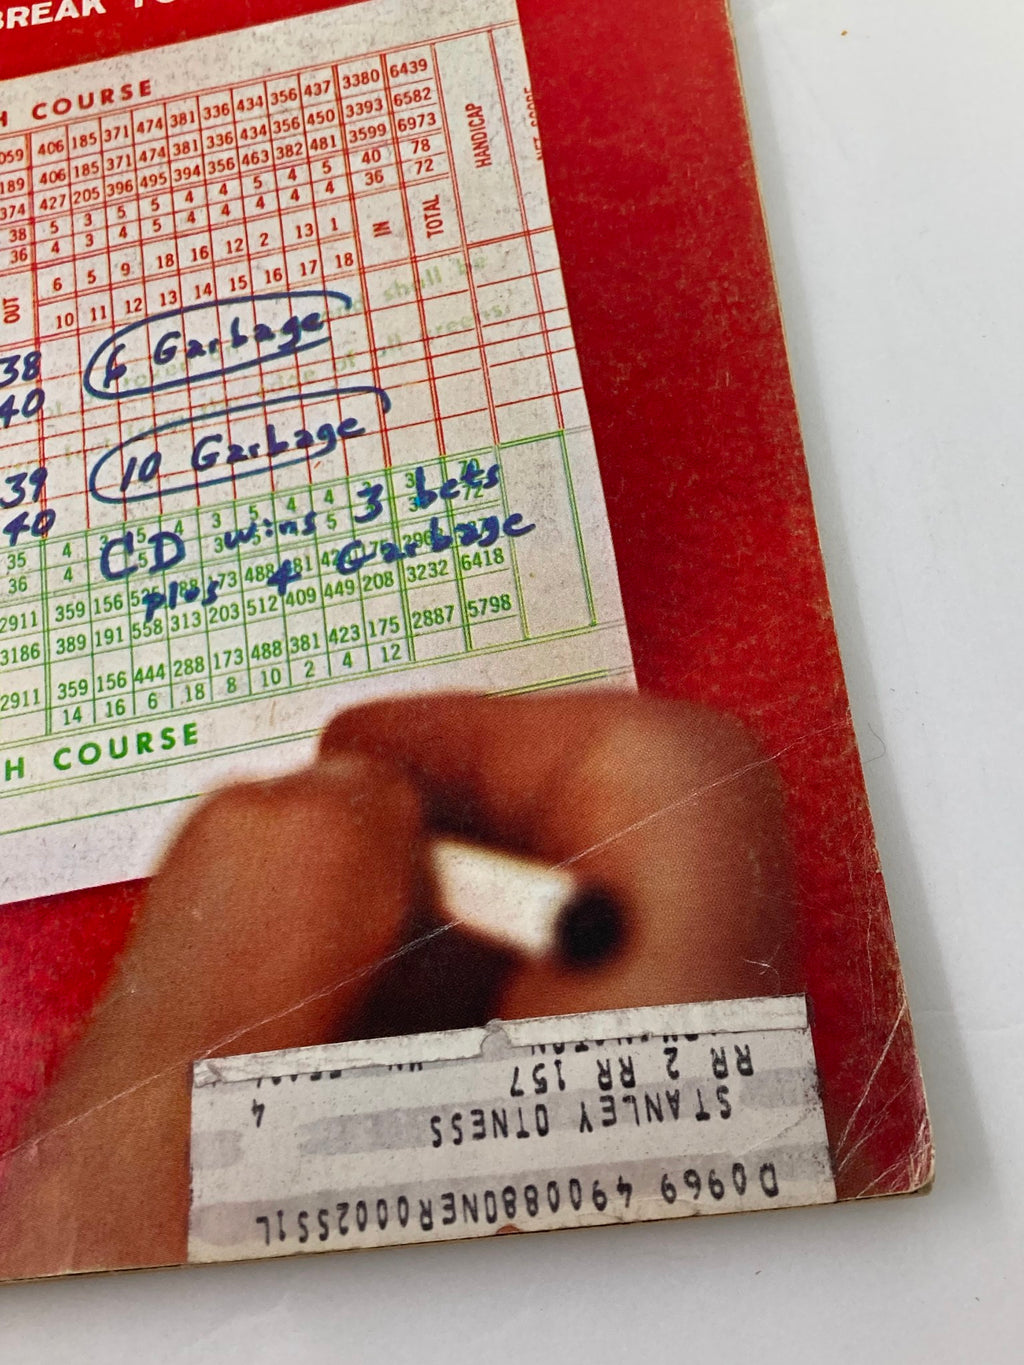 BREAK
H COURSE
059 406 185 371 474 381 336 434 356 437 3380 6439
189 406 185 371 474 381 336 434 356 450 3393 6582
374 427 205 396 495 394 356 463 382 481 3599 6973
38 5 3 5 5 4 4 5 4 5 40 78
36 4 3 4 5 4 4 4 4 4 36 72
6 5 9 18 16 12 2 13 1
OUT 10 11 12 13 14 15 16 17 18 IN TOTAL HANDICAP
shall be
38 6 Garbage
40
39 10 Garbage
40
CD wins 3 bets
plus 4 Garbage
35 4
36 4
2911 359 156
3186 389 191 558 313 203 512 409 449 208 3232 6418
2911 359 156 444 288 173 488 381 423 175 2887 5798
14 16 6 18 8 10 2 4 12
H COURSE
D0969 490088ONER0002SS1L
STANLEY OTNESS 4
RR 2 RR 157